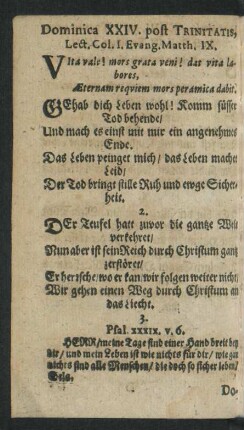 Dominica XXIV. post TRINITATIS,
Lect. Col. I. Evang. Matth. IX.
VIta vale! mors grata veni! dat vita la-
bores,
Æternam requiem mors peramica dabit.
GEhab dich Leben wohl! Komm süsser
Tod behende/
Und mach es einst mit mir ein angenehmes
Ende.
Das Leben peiniget mich/ das Leben machet
Leid/
Der Tod bringt stille Ruh und ewge Sicher-
heit.
2.
DEr Teufel hatt zuvor die gantze Welt
verkehret/
Nun aber ist sein Reich durch Christum gantz
zerstöret/
Er hersche/ wo er kan/ wir folgen weiter nicht/
Wir gehen einen Weg durch Christum an
das Liecht.
3.
Psal. XXXIX. v. 6.
HERR/ meine Tage sind einer Hand breit bey
dir/ und mein Leben ist wie nichts für dir/ wie gar
nichts sind alle Menschen/ die doch so sicher leben/
Sela.
Do-